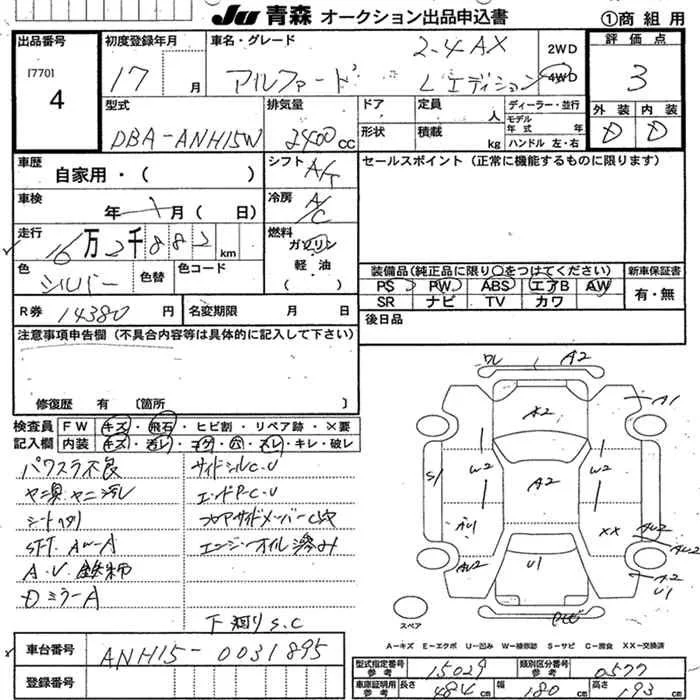 JU 青森 オークション出品申込書
①商組用
出品番号
[770]
4
初度登録年月
17 月
車名・グレード
2-4AX
アルファード Lエディション
2WD
4WD
評価点
3
外装 内装
D D
型式
DBA-ANH15W
排気量
2400 cc
ドア
定員
人
形状
積載
kg
ディーラー・並行
モデル年式
年
ハンドル 左・右
車歴
自家用・( )
シフト
A/T
セールスポイント(正常に機能するものに限ります)
車検
年 月( 日)
冷房
A/C
走行
16万2千882 km
燃料
ガソリン
軽油
( )
色
シルバー
色替
色コード
装備品(純正品に限り○をつけてください)
PS PW ABS エアB AW
SR ナビ TV カワ
新車保証書
有・無
R券
14380 円
名変期限 月 日
後日品
注意事項申告欄(不具合内容等は具体的に記入して下さい)
修復歴 有 〔箇所 〕
検査員記入欄
FW キズ・飛石・ヒビ割・リペア跡・×要
内装 キズ・汚レ・コゲ・穴・スレ・キレ・破レ
パワスラ不良
ヤニ臭 ヤニ汚レ
D ミラーA
サイドシルC.U
エンドP-C.U
エンジンオイル滲み
下廻りS.C
車台番号
ANH15-0031895
登録番号
A2
A1
A2
W2
W2
A2
S1
XX
AU2
AU2
U1
A2
U3
スペア
A-キズ E-エクボ U-凹み W-補修跡 S-サビ C-腐食 XX-交換済
型式指定番号
参考
15029
類別区分番号
参考
0577
車庫証明用
参考
長さ 484 cm
幅 180 cm
高さ 193 cm